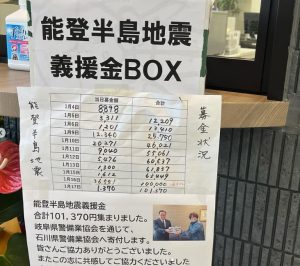 能登半島地震
義援金BOX
能登半島地震
募金状況
当日募金額 合計
1月4日 8898
1月5日 3,311 12,209
1月6日 1,201 13,410
1月9日 12,360 25,750
1月10日 20,271 46,021
1月11日 9,040 55,061
1月12日 5,476 60,537
1月13日
1月15日
1月16日 100,000
1月17日 1,370 101,370
能登半島地震義援金
合計101,370円集まりました。
岐阜県警備業協会を通じて、
石川県警備業協会へ寄付します。
皆さんご協力ありがとうございました。
またこの志に共感してご協力くださいました